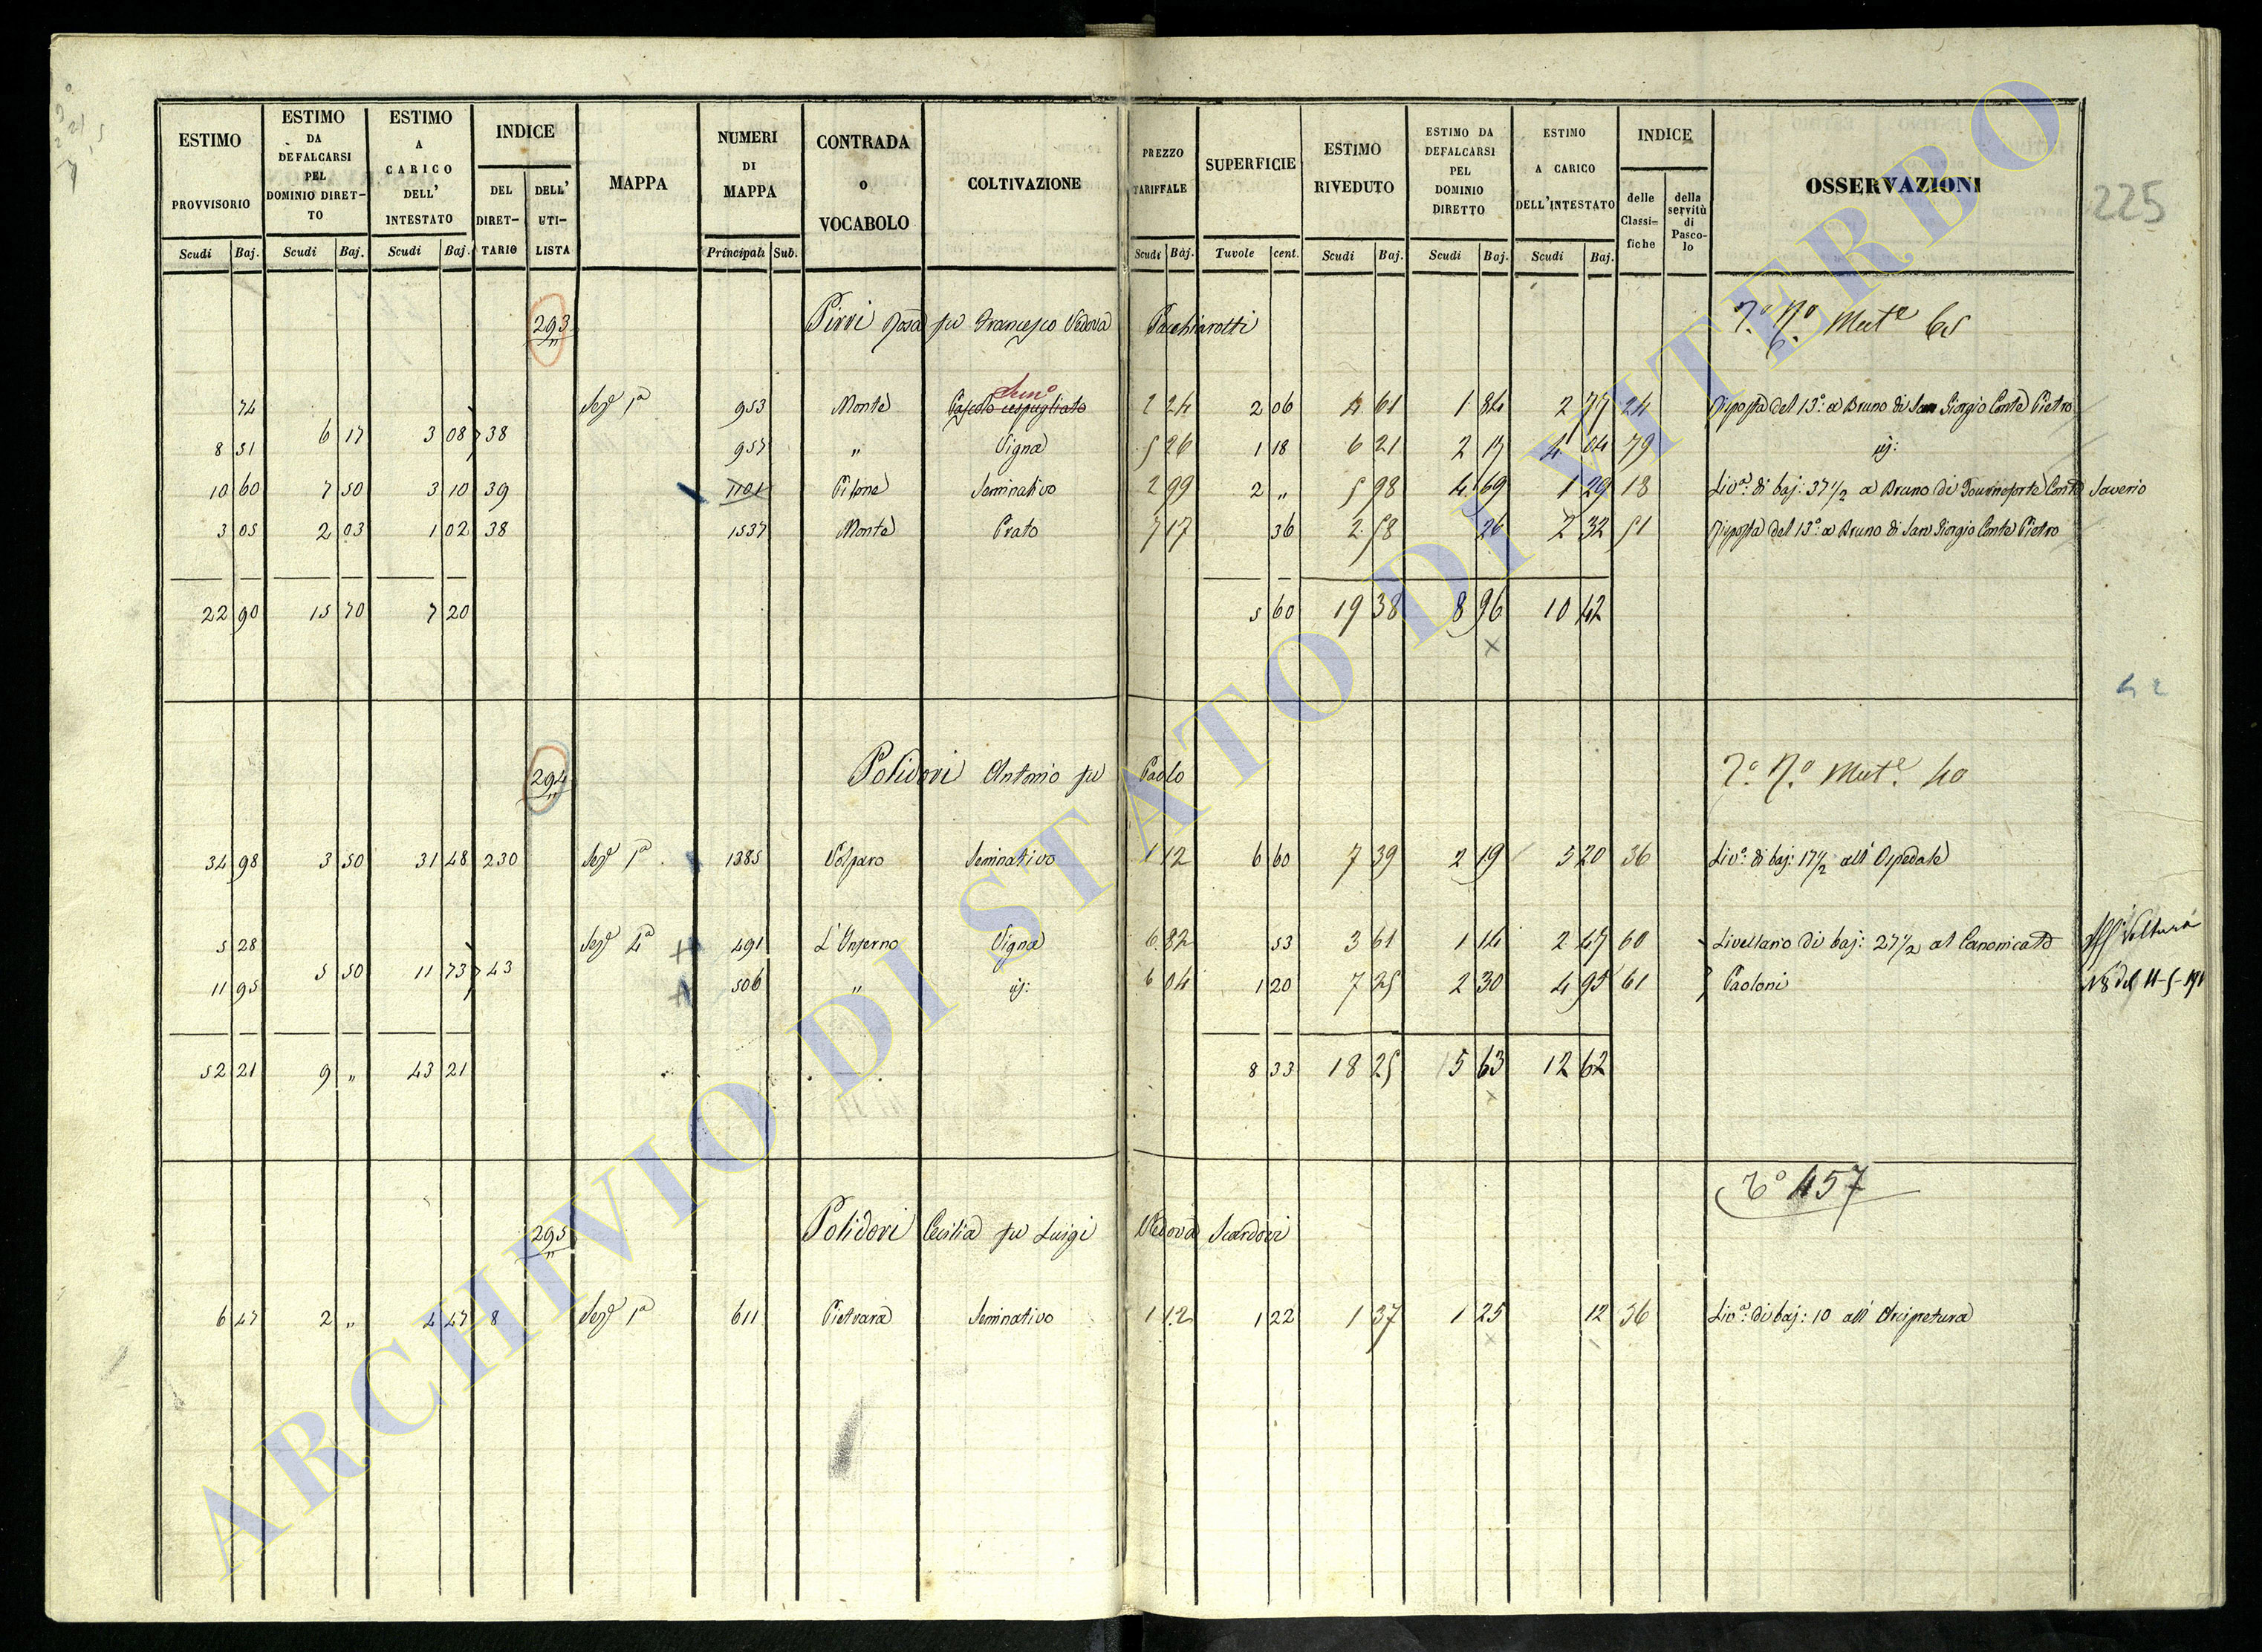 225
ESTIMO PROVVISORIO Scudi Baj.
ESTIMO DA DEFALCARSI PEL DOMINIO DIRET- TO Scudi Baj.
ESTIMO A CARICO DELL' INTESTATO Scudi Baj.
INDICE DEL DIRET- TARIO DELL' UTI- LISTA
MAPPA
NUMERI DI MAPPA Principali Sub.
CONTRADA o VOCABOLO
COLTIVAZIONE
PREZZO TARIFFALE Scudi Baj.
SUPERFICIE Tavole cent.
ESTIMO RIVEDUTO Scudi Baj.
ESTIMO DA DEFALCARSI PEL DOMINIO DIRETTO Scudi Baj.
ESTIMO A CARICO DELL'INTESTATO Scudi Baj.
INDICE delle Classi- fiche della servitù di Pasco- lo
OSSERVAZIONI
293 Pirri Rosa fu Francesco Vedova Pacchiarotti
74 Seze 1a 953 Monte Pascolo cespugliato Semo 2 24 2 06 4 61 1 84 2 77 24 Risposta del 13o: a Bruno di San Giorgio Conte Pietro
6 17 3 08 38
8 51 957 " Vigna 5 26 1 18 6 21 2 17 4 04 79 ij:
10 60 7 50 3 10 39 1101 Pitone Seminativo 2 99 2 " 5 98 4 69 1 29 18 Livo: di baj: 37 1/2 a Bruno di Tournoforte Conte Saverio
3 05 2 03 1 02 38 1537 Monte Prato 7 17 36 2 58 26 2 32 51 Risposta del 13o: a Bruno di San Giorgio Conte Pietro
22 90 15 70 7 20 5 60 19 38 8 96 10 42
294 Polidori Antonio fu Paolo
34 98 3 50 31 48 230 Sezе 1a 1385 Volparo Seminativo 1 12 6 60 7 39 2 19 5 20 36 Livo: di baj: 17 1/2 all' Ospedale
5 28 Seze 4a 491 L'Inferno Vigna 6 82 53 3 61 1 14 2 47 60 Livellario di baj: 27 1/2 al Canonicato
5 50 11 73 43
11 95 506 " ij: 6 04 1 20 7 25 2 30 4 95 61 Paoloni
52 21 9 " 43 21 8 33 18 25 5 63 12 62
457
295 Polidori Cecilia fu Luigi Vedova Scardovi
6 47 2 " 4 47 8 Seze 1a 611 Pietrara Seminativo 1 12 1 22 1 37 1 25 12 36 Livo: di baj: 10 all' Arcipretura
ARCHIVIO DI STATO DI VITERBO